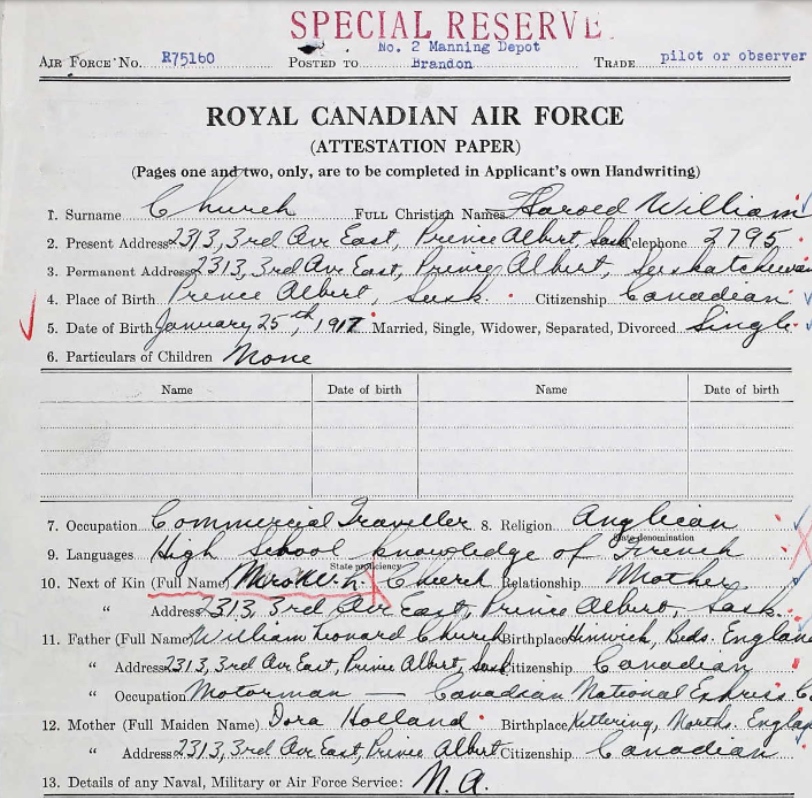 SPECIAL RESERVE
AIR FORCE NO. R75160 POSTED TO No. 2 Manning Depot Brandon TRADE pilot or observer
ROYAL CANADIAN AIR FORCE
(ATTESTATION PAPER)
(Pages one and two, only, are to be completed in Applicant's own Handwriting)
1. Surname Church FULL Christian Names Harold William
2. Present Address 2313, 3rd Ave East, Prince Albert, Sask Telephone 2795
3. Permanent Address 2313, 3rd Ave East, Prince Albert, Saskatchewan
4. Place of Birth Prince Albert, Sask. Citizenship Canadian
5. Date of Birth January 25th, 1917 Married, Single, Widower, Separated, Divorced Single
6. Particulars of Children None
Name Date of birth Name Date of birth
7. Occupation Commercial Traveller 8. Religion Anglican
State denomination
9. Languages High School knowledge of French
State proficiency
10. Next of Kin (Full Name) Mrs. W. L. Church Relationship Mother
" Address 2313, 3rd Ave East, Prince Albert, Sask.
11. Father (Full Name) William Leonard Church Birthplace Hinwick, Beds. England
" Address 2313, 3rd Ave East, Prince Albert, Sask Citizenship Canadian
" Occupation Motorman — Canadian National Express C
12. Mother (Full Maiden Name) Dora Holland Birthplace Kettering, Norths. England
" Address 2313, 3rd Ave East, Prince Albert Citizenship Canadian
13. Details of any Naval, Military or Air Force Service: N.A.